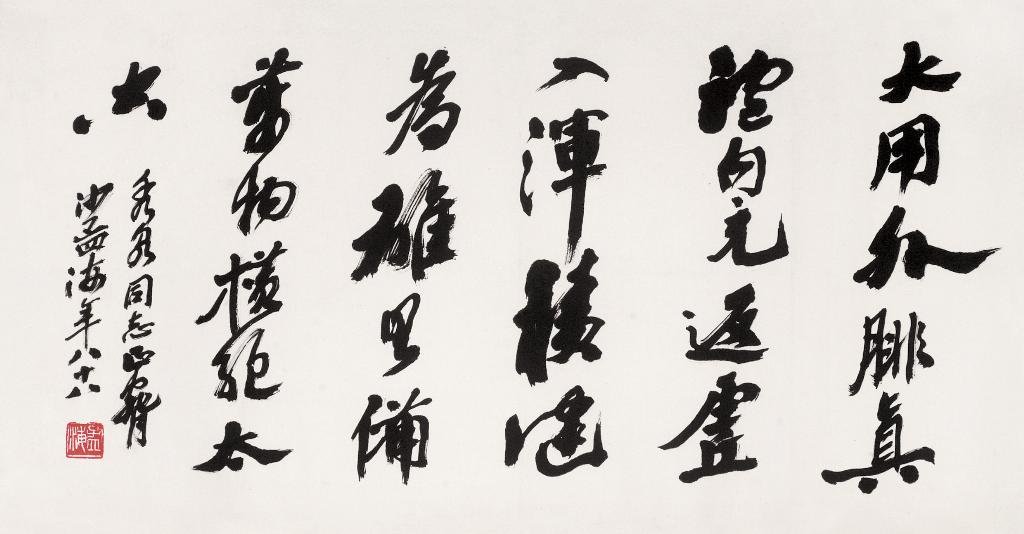 大用外腓真
體内充返虛
入渾積健
為雄具備
萬物橫絕太
空
秀同志正
沙孟海年八十八
孟海